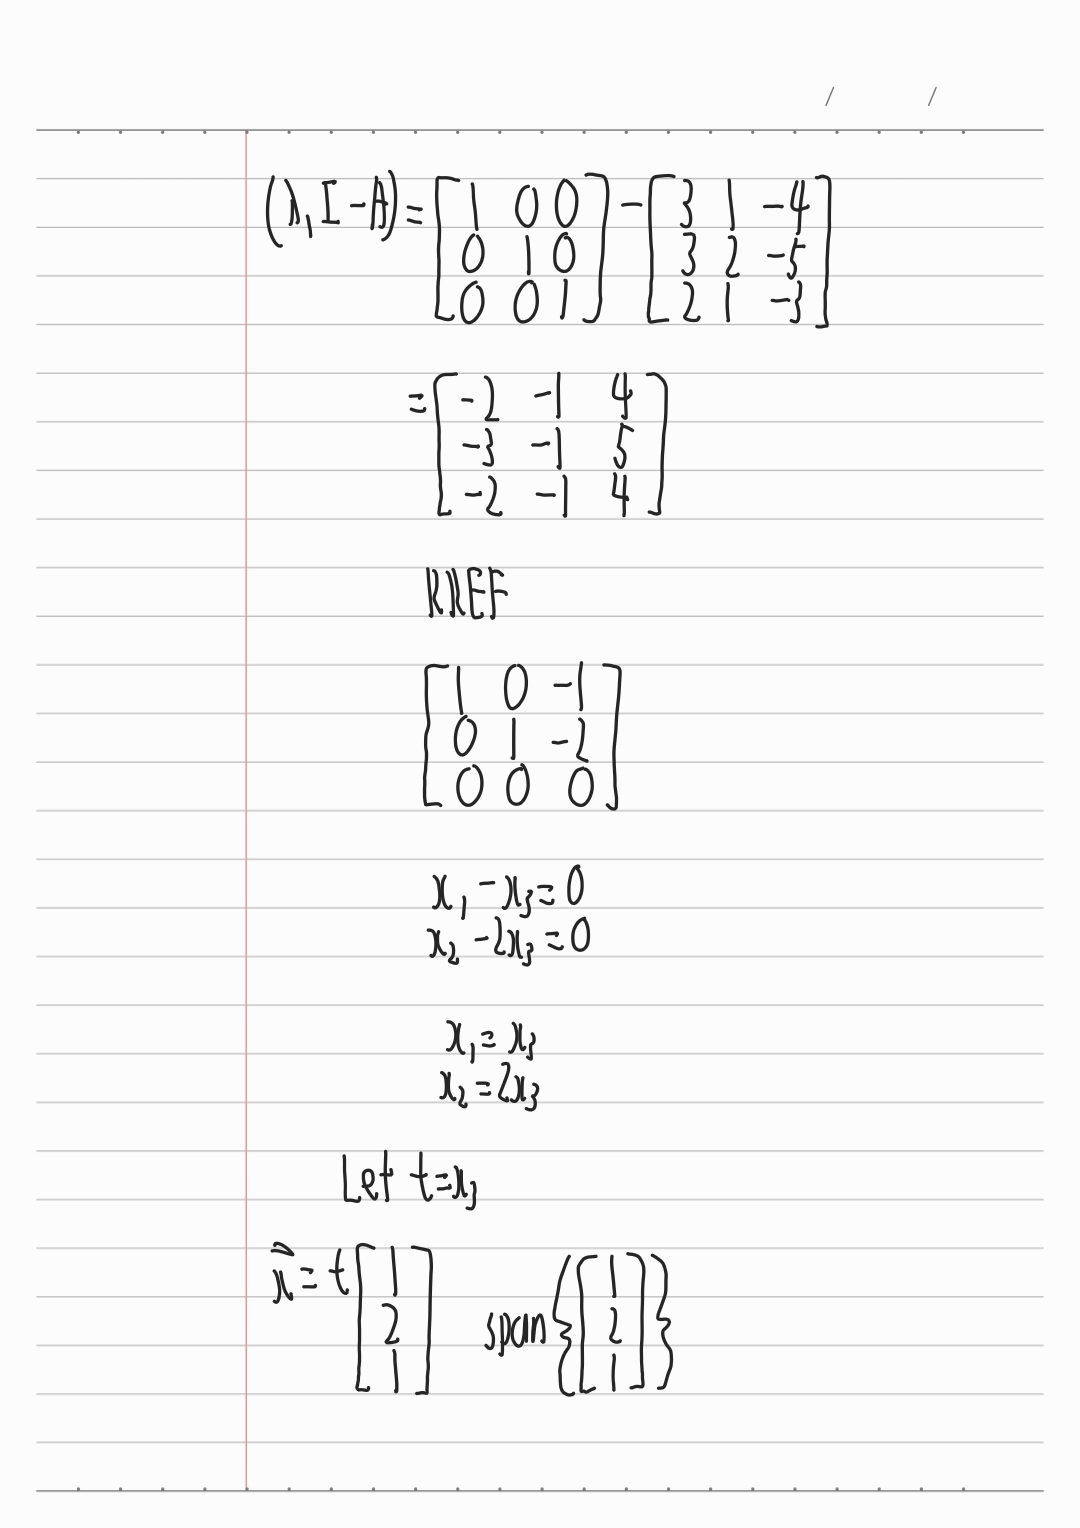 / /
(λ₁I - A) = [1 0 0; 0 1 0; 0 0 1] - [3 1 -4; 3 2 -5; 2 1 -3]
= [-2 -1 4; -3 -1 5; -2 -1 4]
RREF
[1 0 -1; 0 1 -2; 0 0 0]
x₁ - x₃ = 0
x₂ - 2x₃ = 0
x₁ = x₃
x₂ = 2x₃
Let t = x₃
x⃗ = t[1; 2; 1] span{[1; 2; 1]}